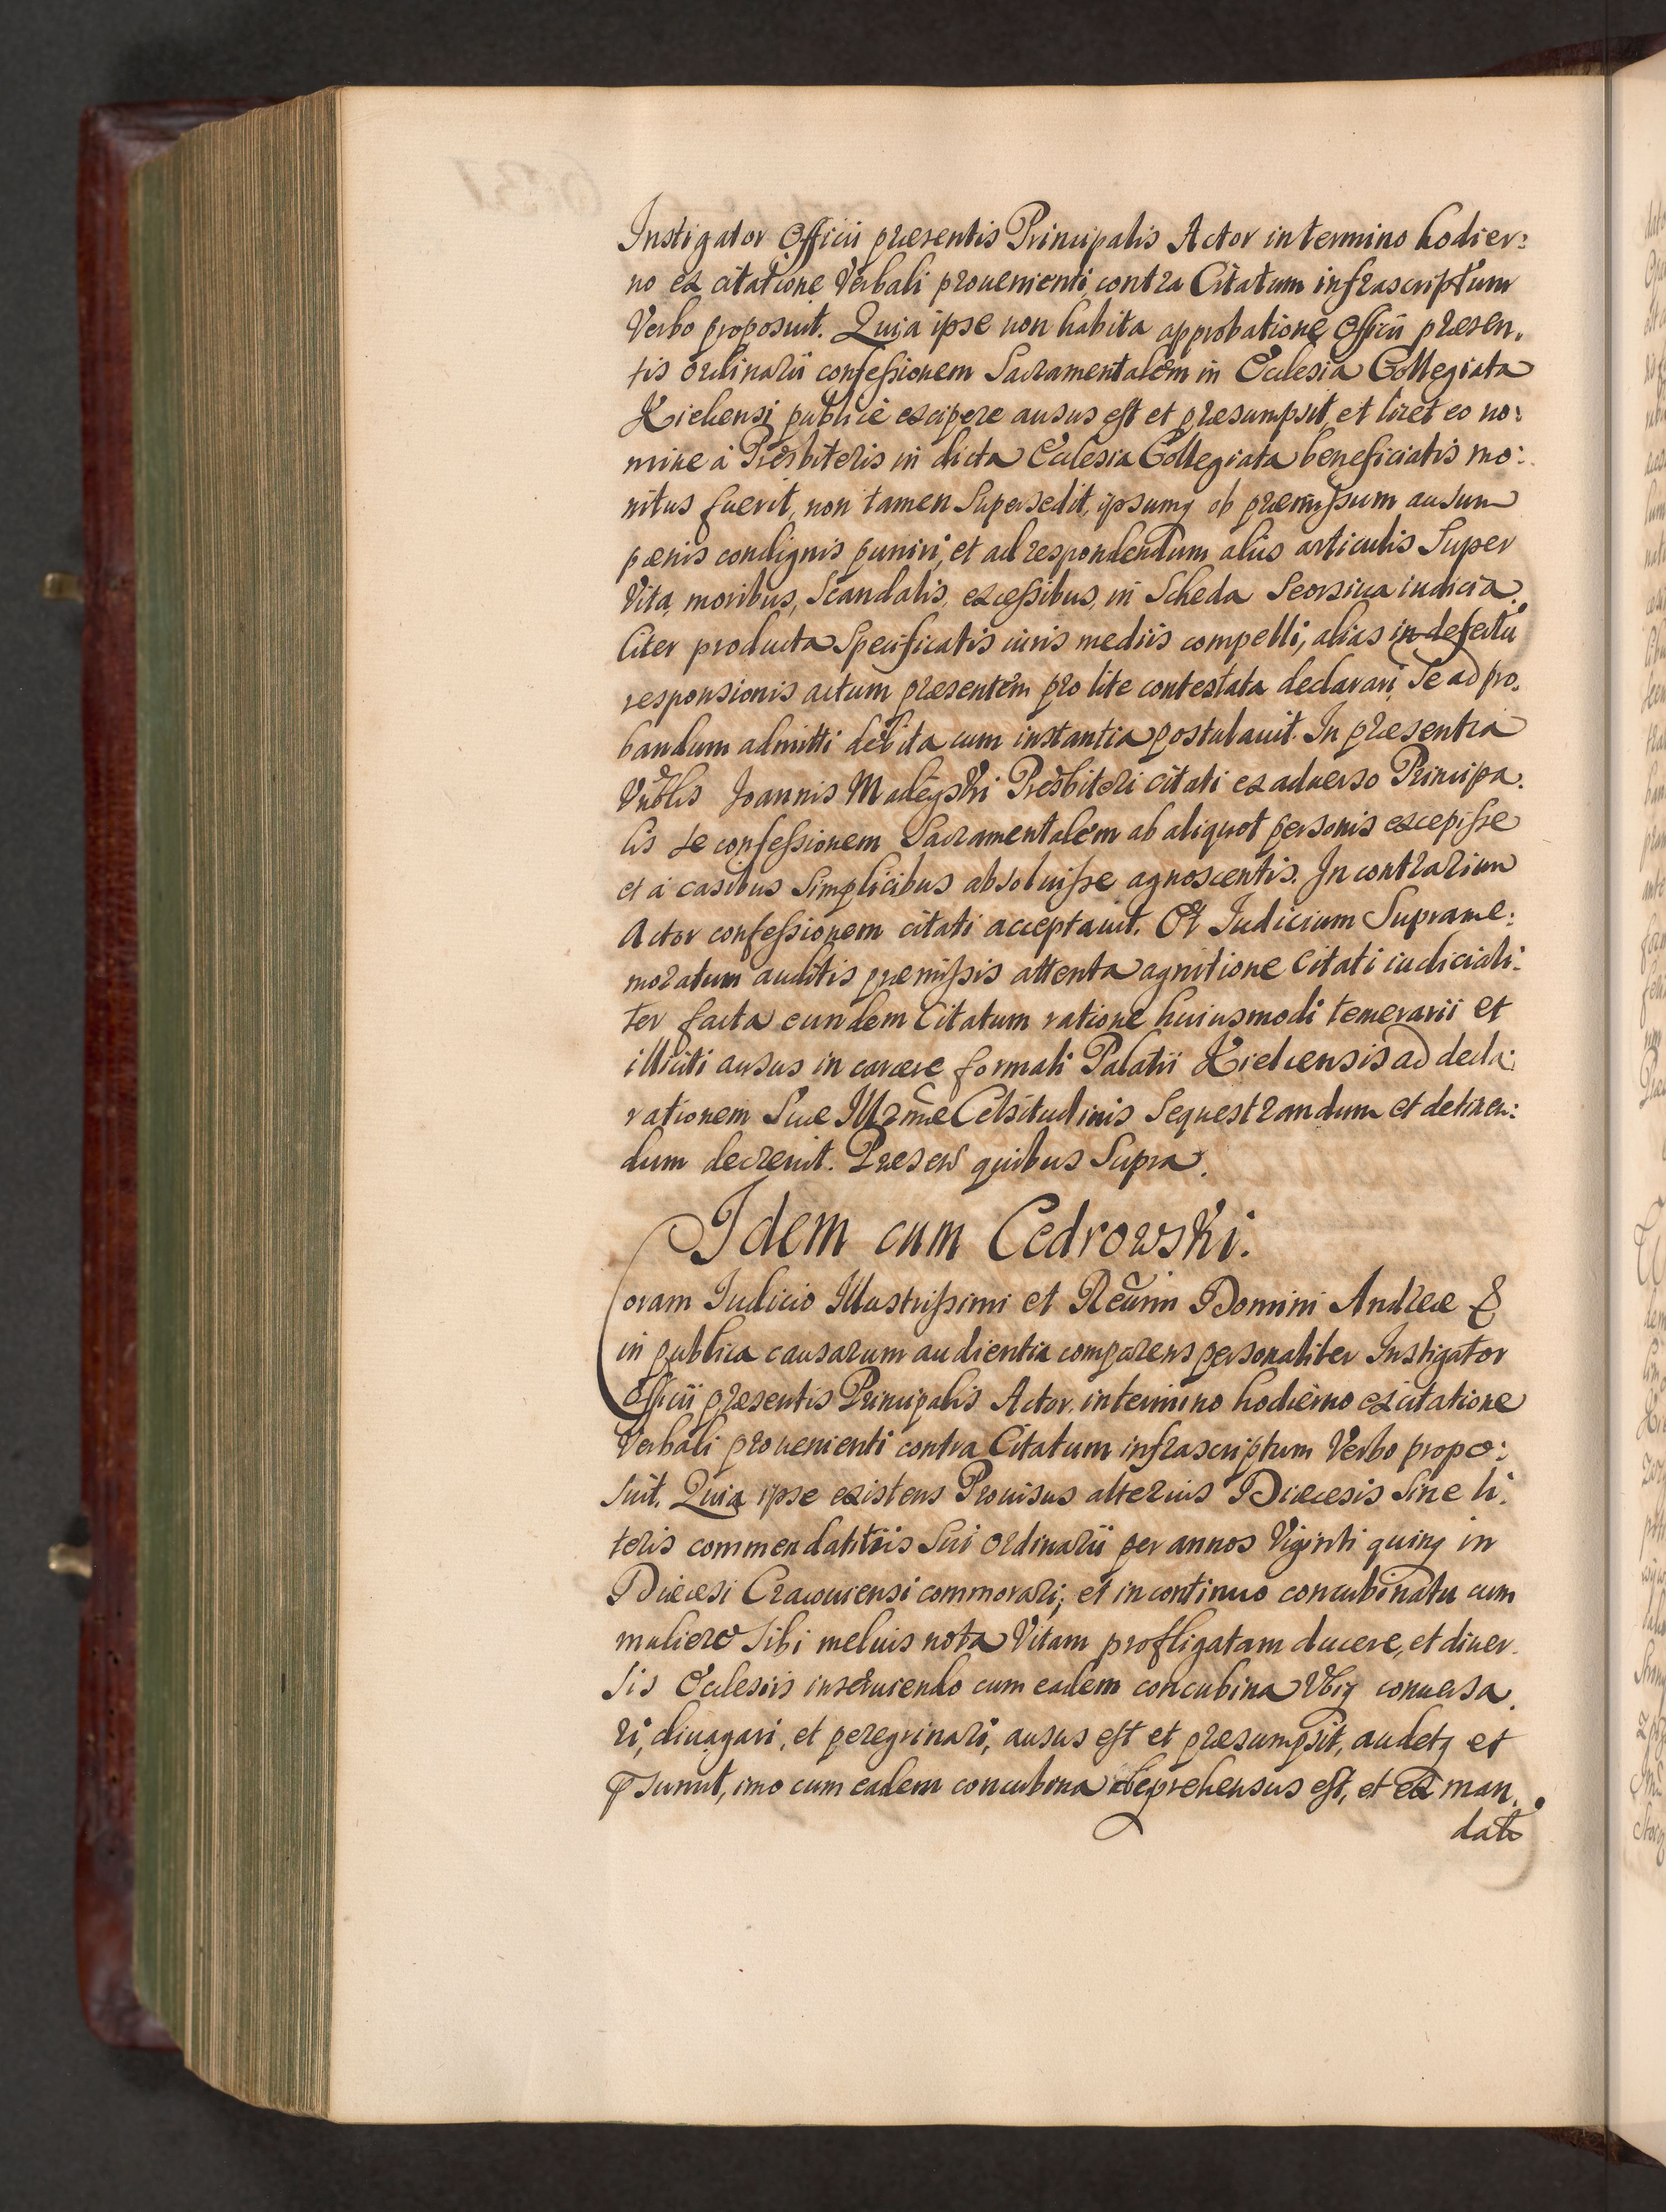 Instigator Officii præsentis Principalis Actor in termino hodier:
no ex citatione Verbali prouenienti contra Citatum infrascriptum
Verbo proposuit. Quia ipse non habita approbatione Officii præsen.
tis Ordinarii confessionem Sacramentalem in Ecclesia Collegiata
Kielcensi publicè excipere ausus est et præsumpsit, et licet eo no:
mine à Præsbiteris in dicta Ecclesia Collegiata beneficiatis mo:
nitus fuerit, non tamen Supersedit, ipsumq ob præmissum ausum
pœnis condignis puniri, et ad respondendum aliis articulis Super
Vita, moribus, Scandalis, excessibus, in Scheda Seorsiua iudicia.
liter producta Specificatis iuris mediis compelli, alias in defectu
responsionis actum præsentem pro lite contestata declarari, Se ad pro.
bandum admitti debita cum instantia postulauit. In præsentia
Vnblis Joannis Madeyski Præsbiteri citati ex aduerso Principa.
lis se confessionem Sacramentalem ab aliquot personis excepisse
et à casibus Simplicibus absoluisse agnoscentis. In contrarium
Actor confessionem citati acceptauit. Et Iudicium Suprame:
moratum auditis præmissis attenta agnitione Citati iudiciali:
ter facta eundem Citatum ratione huiusmodi temerarii et
illiciti ausus in carcere formali Palatii Kielcensis ad decla:
rationem Suæ Illrmæ Celsitudinis Sequestrandum et detinen:
dum decreuit. Præsen quibus Supra.
Idem cum Cedrowski.
Coram Iudicio Illustrissimi et Reũrmi Domini Andreæ &
in publica causarum audientia comparens personaliter Instigator
Officii præsentis Principalis Actor in termino hodierno ex citatione
Verbali prouenienti contra Citatum infrascriptum Verbo propo:
suit. Quia ipse existens Prouisus alterius Diæcesis Sine li.
teris commendatitiis Sui Ordinarii per annos Viginti quinq in
Diæcesi Cracouiensi commorari; et in continuo concubinatu cum
muliere Sibi melius nota Vitam profligatam ducere, et diuer.
sis Ecclesiis inseruiendo cum eadem concubina Vbiq conuersa.
ri, diuagari, et peregrinari, ausus est et præsumpsit, audetq et
psumit, imo cum eadem concubina deprehensus est, et ex man.
dato